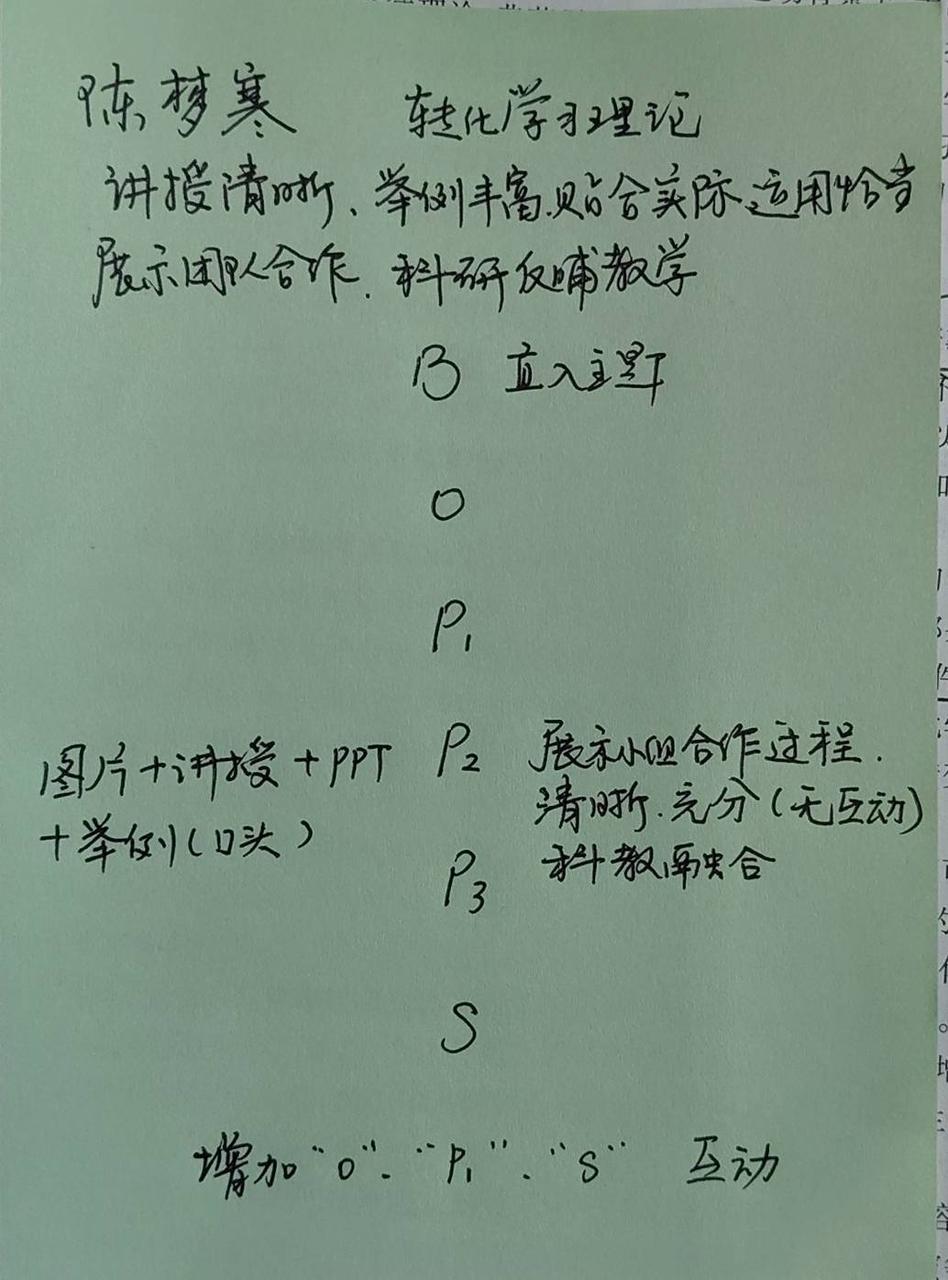 陈梦寒 转化学习理论
讲授清晰、举例丰富、贴合实际、运用恰当
展示团队合作、科研反哺教学
B 直入主题
O
P₁
图片+讲授+PPT P₂ 展示小组合作过程.
+举例(口头) 清晰.充分(无互动)
P₃ 科教融合
S
增加"O"、"P₁"、"S" 互动